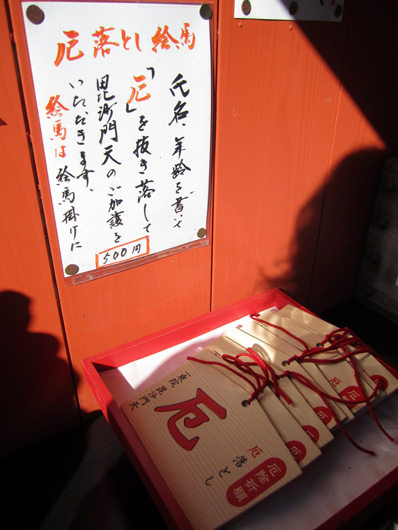 厄落とし絵馬
氏名、年齢を書いて
「厄」を抜き落して
毘沙門天のご加護を
いただきます、
絵馬は絵馬掛けに
500円
厄除祈願
厄落とし
厄
東院毘沙門天